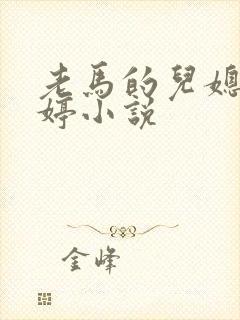 老馬的兒媳
婷小說
金峰